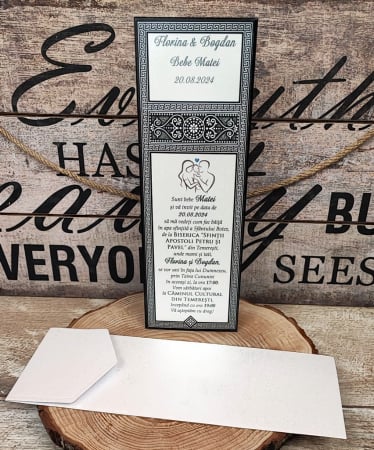 Everything
HAS
Beauty BUT
EVERYONE SEES
Florina & Bogdan
Bebe Matei
20.08.2024
Sunt bebe Matei
și vă invit pe data de
20.08.2024
să mă vedeți cum fac băiță
în apa sfințită a Sfântului Botez,
de la BISERICA "SFINȚII
APOSTOLI PETRU ȘI
PAVEL" din Temerești,
unde mami și tati,
Florina și Bogdan,
se vor uni în fața lui Dumnezeu,
prin Taina Cununiei
în aceeași zi, la ora 17:00
Vom sărbători apoi
la CĂMINUL CULTURAL
DIN TEMEREȘTI,
începând cu ora 19:00
Vă așteptăm cu drag!